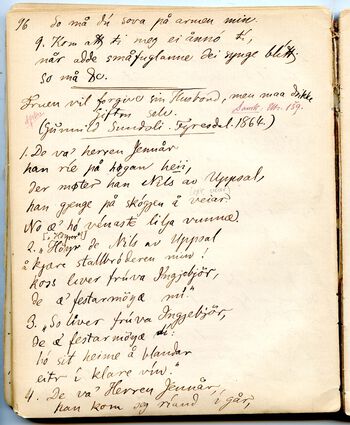 96 so må du sova på armen min.
9. Kom att ti meg ei ånno ti,
når adde småfuglanne dei synge blítt;
so må de.
Fruen vil forgive sin Husbond, men maa drikke
Giften selv.
(Gunnild Sundsli. Fyresdal. 1864.)
1. De va' herren Jennår
han rie på høgan heii,
der møter han Nils av Uppsal,
han gjenge på skógjen å veiar.
No æ' hó vénaste lilja vunnæ
2. "Høyr de Nils av Uppsal
å kjære stallbróderen min!
koss liver frúva Ingjebjör,
de æ' festarmöyæ mi."
3. "So liver frúva Ingjebjör,
de æ' festarmöyæ di:
hó sit heime å blandar
eitr i klare vin."
4. De va' Herren Jennår,
han kom seg riand i går,